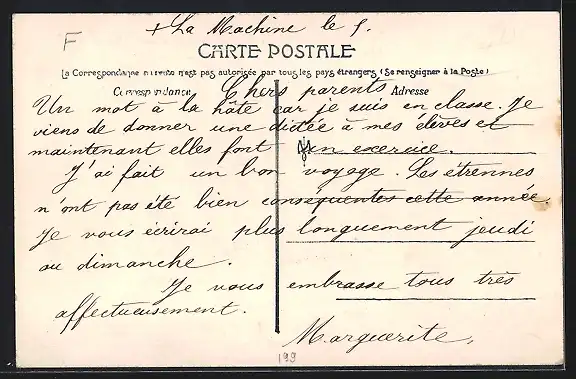 + La Machine le 5.
F
CARTE POSTALE
La Correspondance au recto n'est pas autorisée par tous les pays étrangers (Se renseigner à la Poste)
Correspondance
Adresse
Chers parents
Un mot à la hâte car je suis en classe. Je
viens de donner une dictée à mes élèves et
maintenant elles font un exercice.
J'ai fait un bon voyage. Les étrennes
n'ont pas été bien conséquentes cette année.
Je vous écrirai plus longuement jeudi
ou dimanche.
Je vous embrasse tous très
affectueusement.
Marguerite.
199